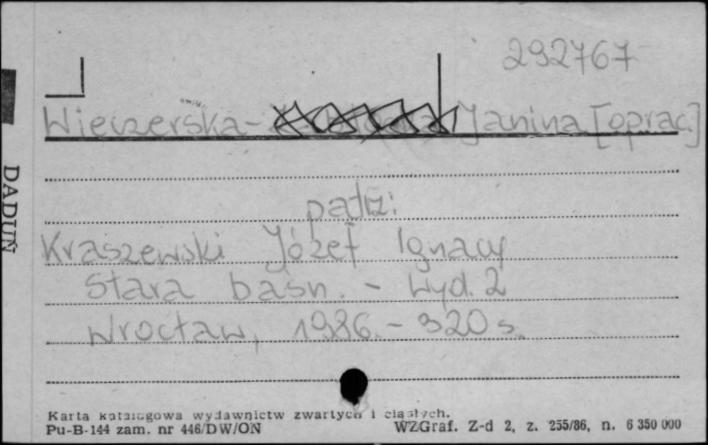 292767
Wieczerska- Janina [oprac]
patrz:
Kraszewski Józef Ignacy
Stara baśń. - Wyd. 2
Wrocław, 1986. - 320 s.
DADUŃ
Karta katalogowa wydawnictw zwartych i ciągłych.
Pu-B-144 zam. nr 446/DW/ON WZGraf. Z-d 2, z. 255/86, n. 6 350 000